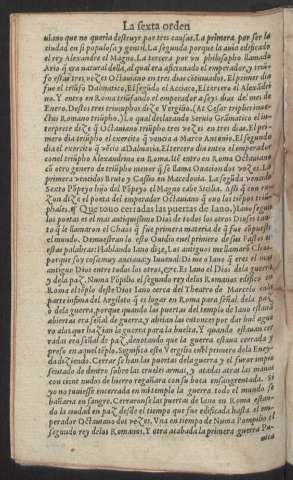 La sexta orden
ulano que no queria destruyr por tres causas. La primera por ser la
ciudad en si populosa y gentil. La segunda porque la auia edificado
el rey Alexandre el Magno. La tercera por vn philosopho llamado
Ario q̃ era natural della, al qual era aficionado el emperador, y triũ-
fo estas tres vezes Octauiano en tres dias cõtinuados. El primer dia
fue el triũfo Dalmatico, El segũdo el Acciaco, El tercero el Alexãdri
no. Y entro en Roma triũfando el emperador a seys dias del mes de
Enero. Destos tres triumphos dize Vergilio. (At Cesar triplici inue-
ctus Romano triũpho.) Lo qual declarando Seruio Grãmatico el in-
terprete dize q̃ Octauiano triũpho tres vezes en tres dias. El pri-
mero dia triũpho el exercito q̃ vencio a Marco Antonio. El segundo
dia el exercito q̃ vẽcio a Dalmatia, El tercero dia entro el emperador
con el triũpho Alexandrino en Roma. Itẽ entro en Roma Octauiano
cũ otro genero de triũpho menor q̃ se llama Ouacion dos vezes. La
primera vencidos Bruto y Cassio en Macedonia. La segũda vencido
Sexto Põpeyo hijo del Põpeyo el Magno cabe Sicilia. Assi q̃ con ra-
zon dize el poeta del emperador Octauiano q̃ tuo los triũpos triũ-
phales. ¶ Que touo cerradas las puertas de Iano.) Iano segun
los poetas es el mas antiquissimo Dios de todos los otros Dioses tan
to q̃ le llamaron el Chaos q̃ fue primera materia de q̃ fue cõpuesto
el mundo. Demuestralo esto Ouidio en el primero de sus Fastos en
estas palabras: Hablando Iano dize, Los antiguos me llamarõ Chaos
porque soy cosa muy anciana: y luuenal: Di me o Iano q̃ eres el mas
antiguo Dios entre todos los otros, &c. Es Iano el Dios dela guerra
y dela paz. Numa Põpilio el segundo rey delos Romanos edifico en
Roma el tẽplo deste Dios Iano cerca del Theatro de Marcelo enla
parte infima del Argileto q̃ es lugar en Roma para señal dela paz
o dela guerra, porque quando las puertas del templo de Iano estauã
abiertas era señal de guerra, y abrian las entonces por dar buẽ ague
ro alos que hazian la guerra para la buelta. Y quando estauan cer
radas era señal de paz, denotando que la guerra estaua cerrada y
preso en aquel tẽplo. Significa esto Vergilio enel primero dela Eney-
da diziendo. Cerrar se han las puertas dela guerra y el furor impio
sentado de dentro sobre las crueles armas, y atadas atras las manos
con cient nudos de hierro regañara con su boca ensangrentada. Si
yo no tuuiesse encerrada en mi templo la guerra todo el mundo se
bañaria en sangre. Cerraronse las puertas de Iano en Roma estan-
do la ciudad en paz desde el tiempo que fue edificada hasta el em-
perador Octauiano dos vezes, Vna en tiempo de Numa Pompilio el
segundo rey delos Romanos, Y otra acabada la primera guerra Pu-
nica